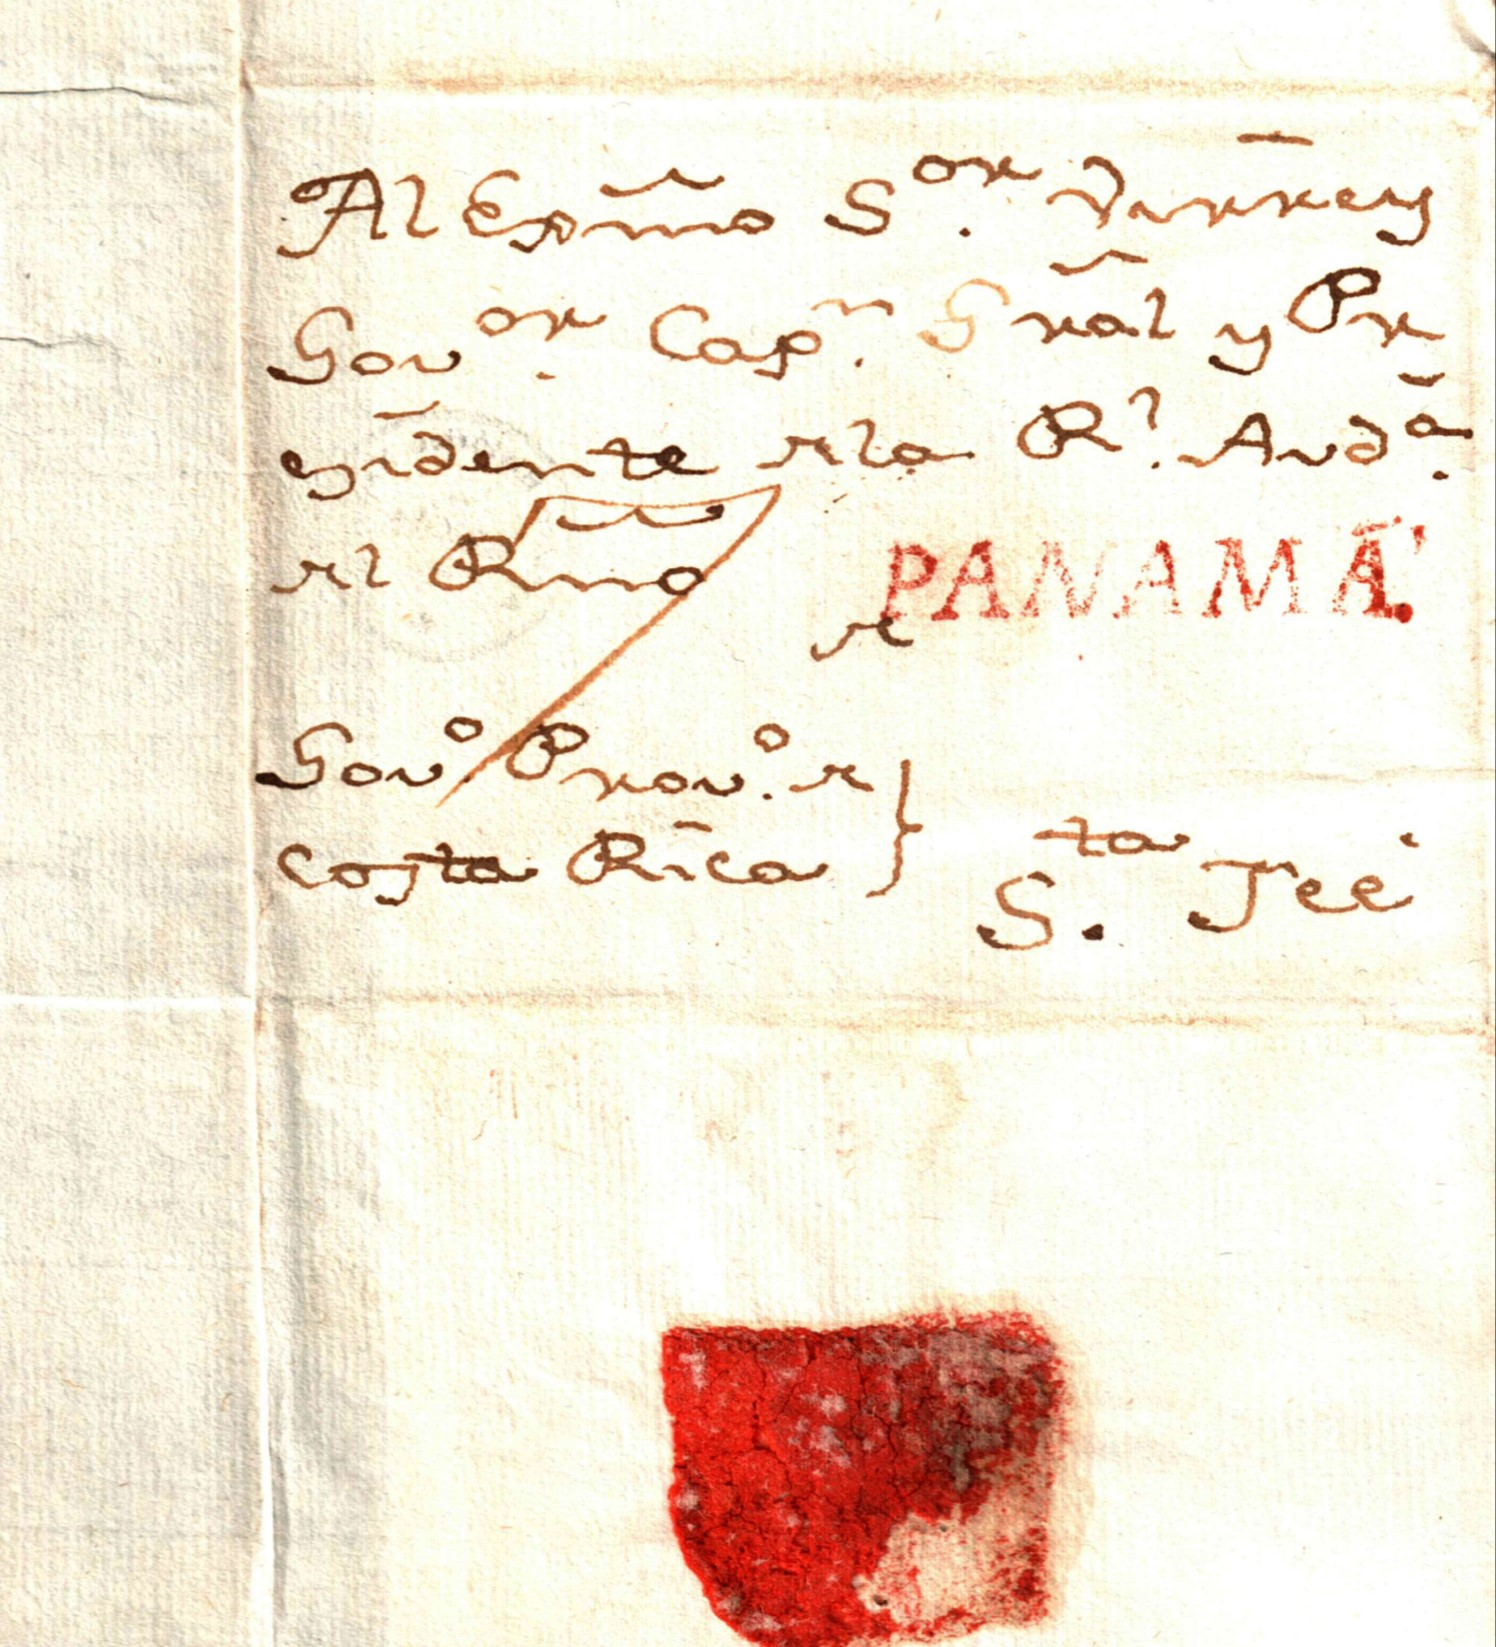 Al Exp̃mo S.or Virrey
Gov.or Cap.n Gr̃al y Pr
esidente de la R.l Aud.a
del Rno
PANAMÁ.
de
Gov.o Prov.o de
Costa Rica
S.ta Feé